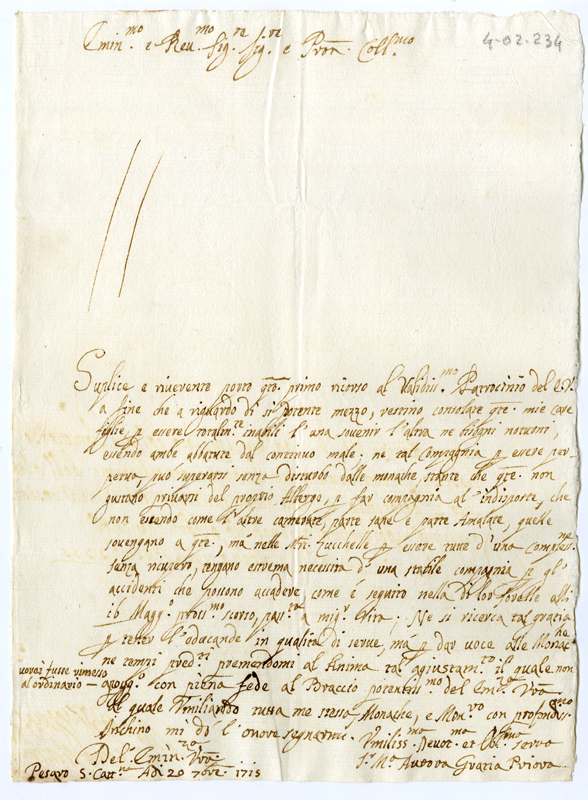 4-02-234
Emin.mo e Reu.mo Sig.re Sig.re e Pron. Coll.mo
Suplice e riverente porto qto. primo ricorso al Validiss.mo Patrocinio del E.V.
a fine che a riguardo di si potente mezzo, restino consolate qte. mie care
figlie, p essere totalm.te inabili l'una suvenir l'altra ne bisogni noturni,
essendo ambe abatute dal continuo male. ne tal Compagnia p essere per-
petua può superarsi senza disturbo dalle monache, stante che qte. non
gustano privarsi del proprio Albergo, p far compagnia al indisposte, che
non essendo come l'altre camerate, parte sane e parte Amalate, quelle
sovengano a qte., mà nelle Zucchelle p essere tutte d'una
senza ricovero, tengano estrema necessità d'una stabile compagnia p gl'
accidenti che possono accadere, come é seguito nella di loro sorelle alli
16 Magg.o pross.mo scorso, pas.ta a mig.r Vita. Ne si ricerca tal gratia
p tener l'educande in qualità di serve, má p dar voce alle Monache
ne tempi pred.ti premendomi al Anima tal agiustam.to il quale non
vorei fusse rimesso
al ordinario — apogg.o con piena fede al Braccio potentiss.mo del Em.za Vra
al quale Umiliando tutta me stessa Monache, e Mon.ro con profondiss.o
Inchino mi dò l'onore segnarmi. Umiliss.ma Devot.ma et Obl.ma serva
Del. Emin.za Vra.
S.r Ma. Aurora Gratia Priora
Pesaro S. Catt.na Adì 20 7bre. 1715